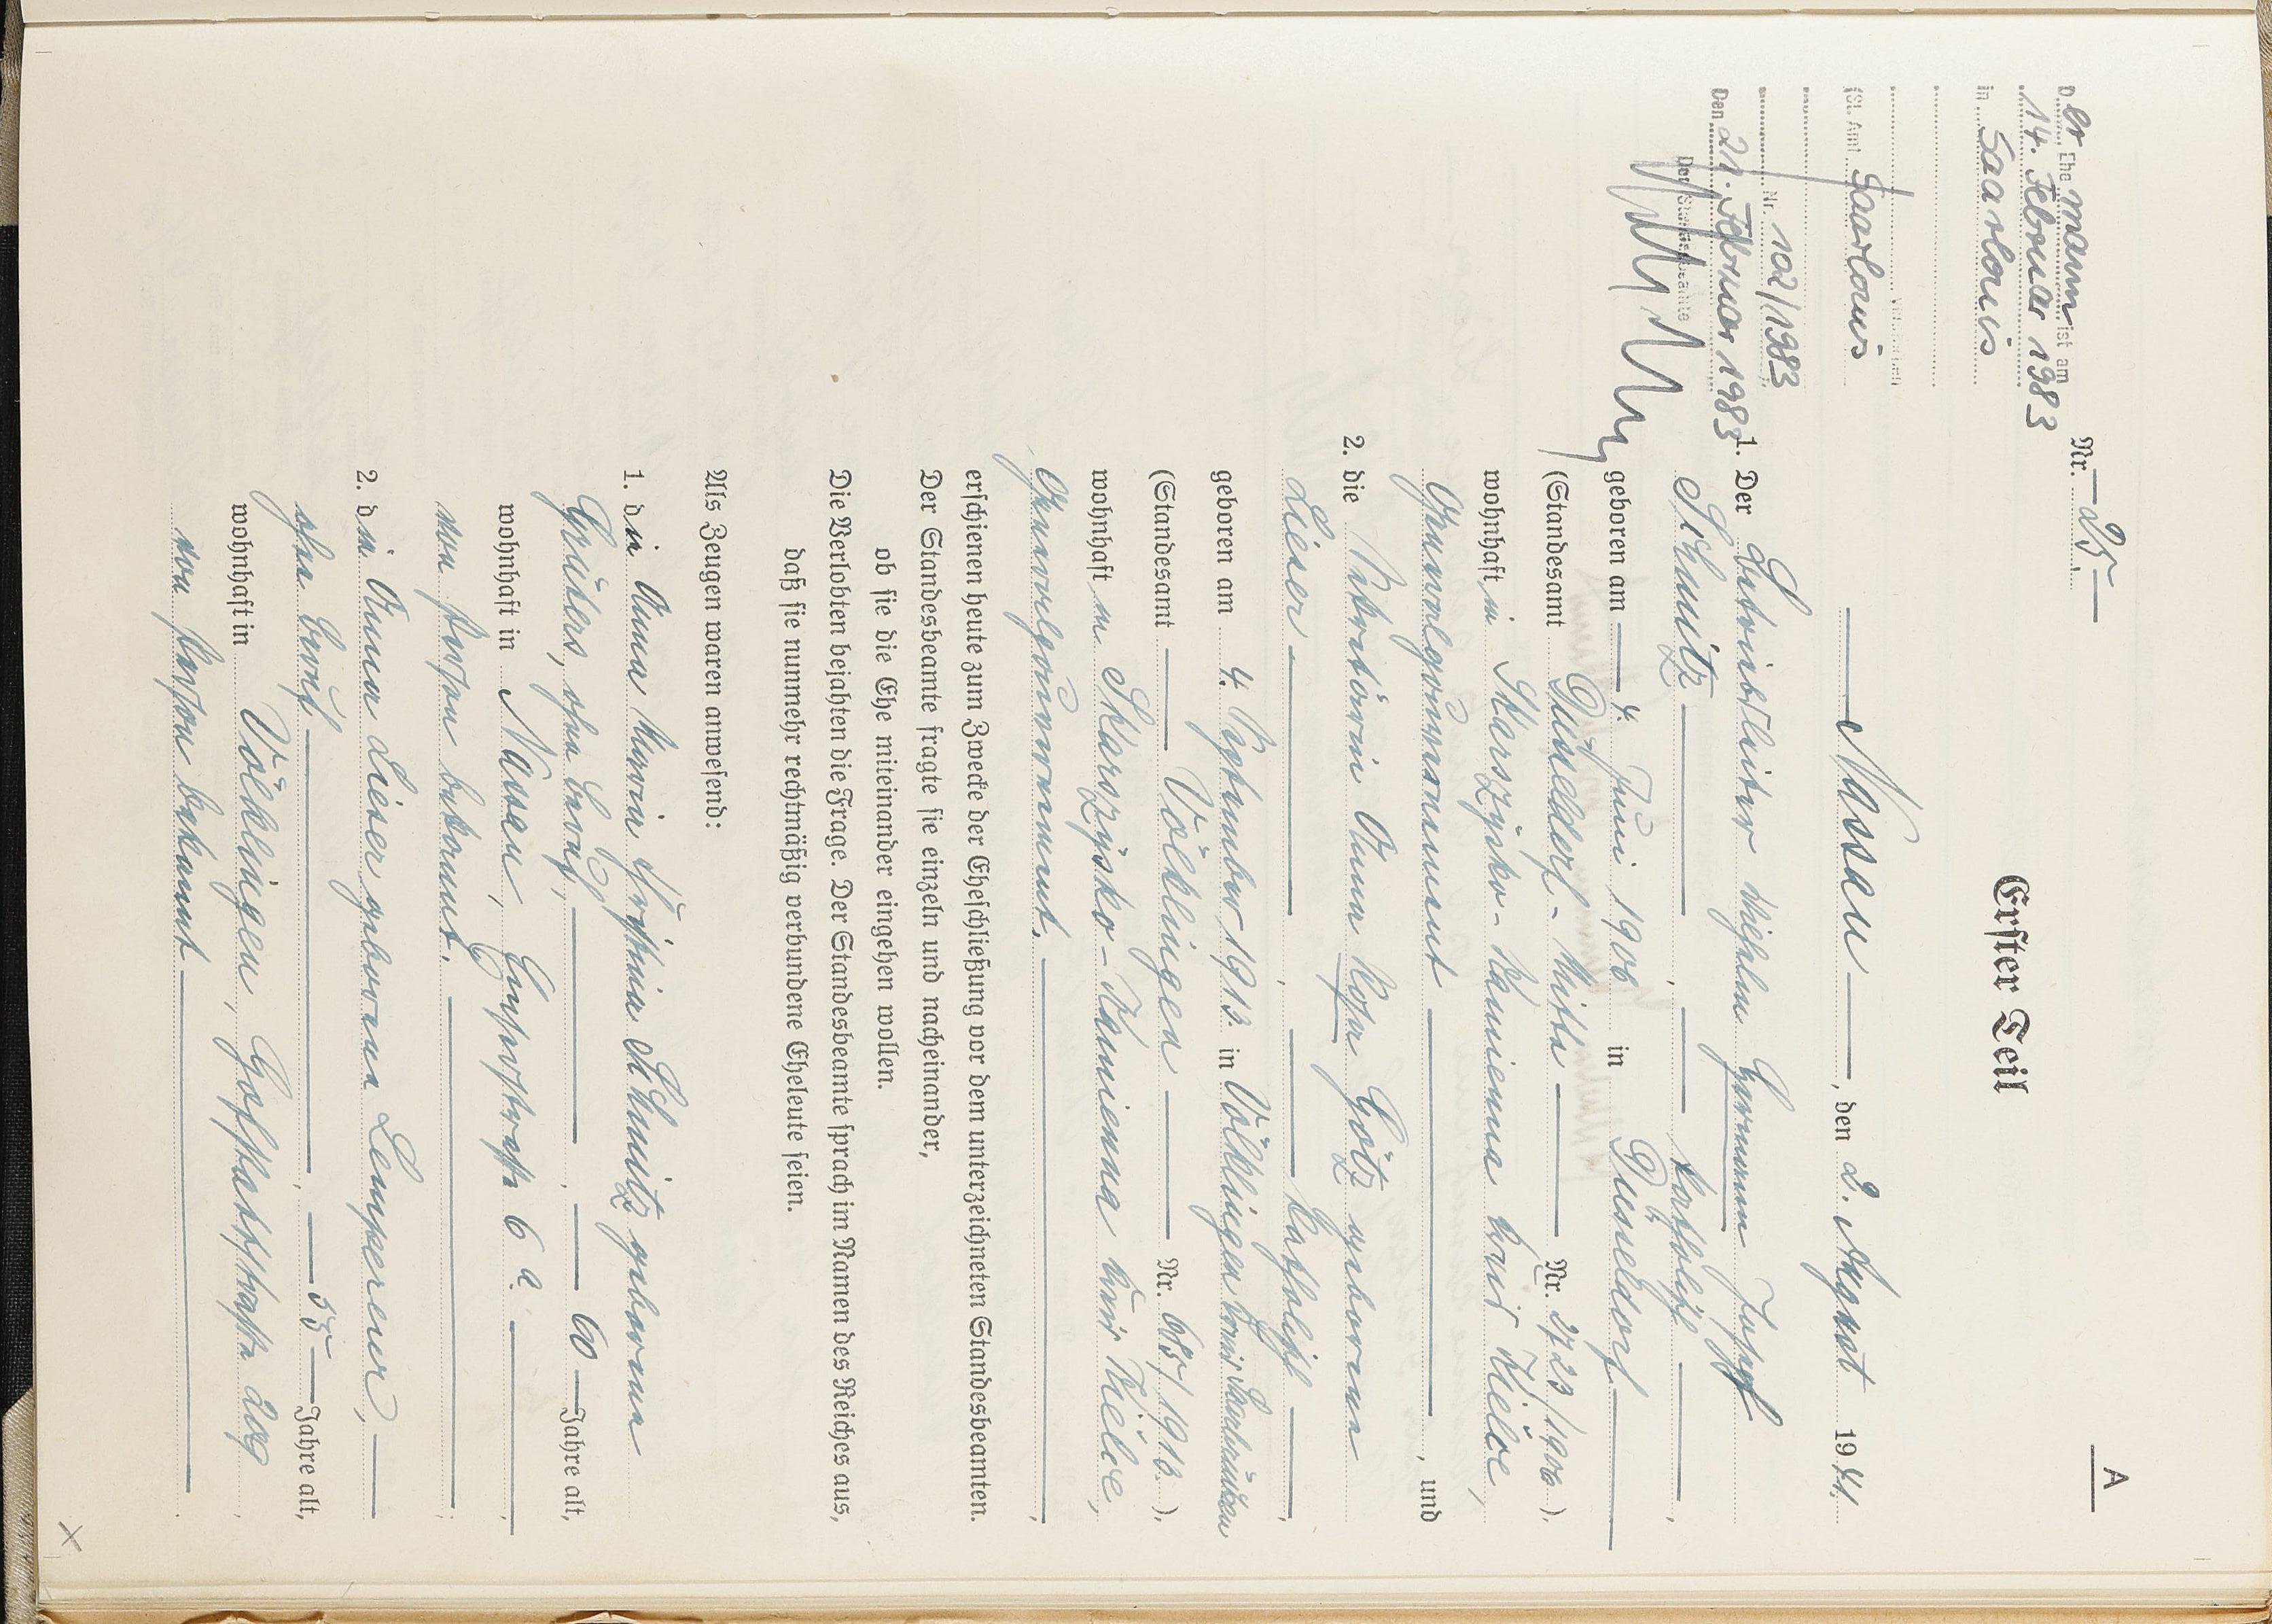 A
Nr. 25
Der Ehemann ist am
14. Februar 1983
in Saarlouis
verstorben
(St. Amt Saarlouis
Nr. 102/1983
Den 21. Februar 1983
Der Standesbeamte
Erster Teil
Nassau, den 2. August 1941.
1. Der Betriebsleiter Wilhelm Hermann Josef
Schmitz, katholisch,
geboren am 4. Juni 1906 in Düsseldorf
(Standesamt Düsseldorf-Mitte Nr. 2723/1906),
wohnhaft in Skarszysko-Kamienna Kreis Kielce,
Generalgouvernement, und
2. die Sekretärin Anna Rosa Götz geborene
Lieser, katholisch,
geboren am 4. September 1913. in Völklingen Kreis Saarbrücken
(Standesamt Völklingen Nr. 685/1913.),
wohnhaft in Skarszysko-Kamienna Kreis Kielce,
Generalgouvernement.,
erschienen heute zum Zwecke der Eheschließung vor dem unterzeichneten Standesbeamten.
Der Standesbeamte fragte sie einzeln und nacheinander,
ob sie die Ehe miteinander eingehen wollen.
Die Verlobten bejahten die Frage. Der Standesbeamte sprach im Namen des Reiches aus,
daß sie nunmehr rechtmäßig verbundene Eheleute seien.
Als Zeugen waren anwesend:
1. die Anna Maria Schmitz geborene
ohne Beruf, 60 Jahre alt,
wohnhaft in Nassau, 6a.
von Person bekannt.
2. die Anna Lieser geborene Lempereur,
ohne Beruf, 55 Jahre alt,
wohnhaft in Völklingen, 209
von Person bekannt